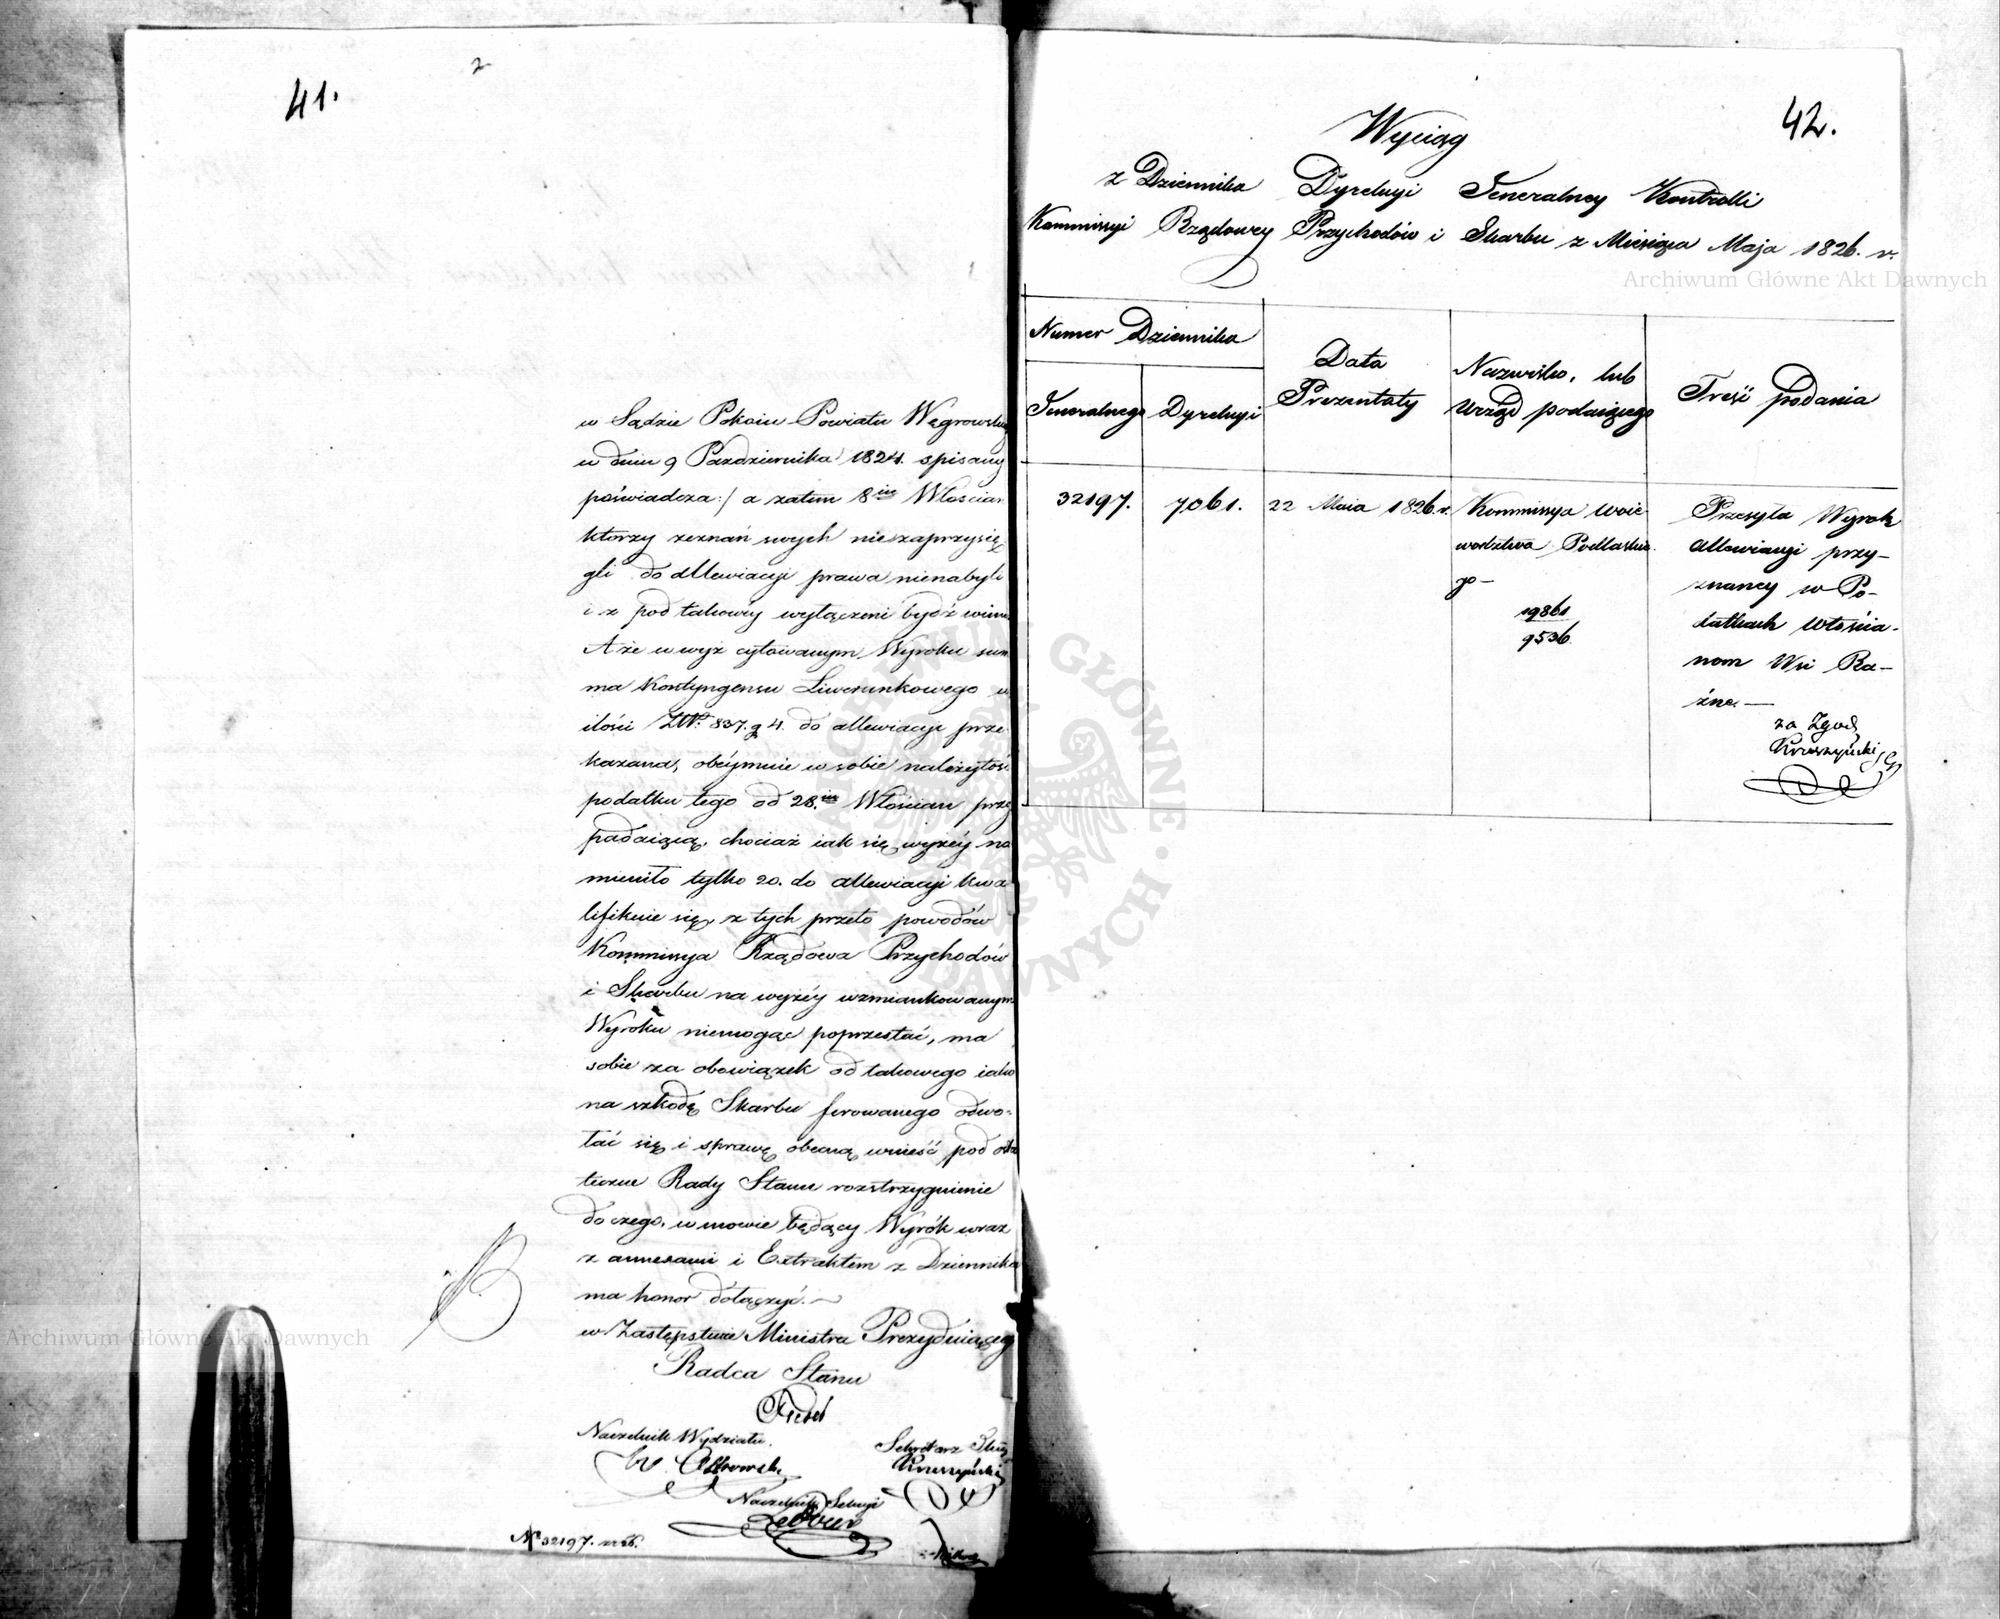 41.
2
w Sądzie Pokoiu Powiatu Węgrowskieg
w dniu 9 Pazdziernika 1824. spisany
poświadcza:/ a zatem 8iu Włoscian
ktorzy zeznań swych niezaprzysię
gli do allewiacyi prawa nienabyli
i z pod takowéy wyłączeni bydź winni
A że w wyż cytowanym Wyroku sum
ma Kontyngensu Liwerunkowego w
ilości ZłP. 837. g 4. do allewiacyi prze
kazana, obeymuie w sobie należytość
podatku tego od 28.iu Włościan przy
padaiącą, chociaż iak się wyżéy na
mieniło tylko 20. do allewiacyi kwa
lifikuie się, z tych przeto powodów
Kommissya Rządowa Przychodów
i Skarbu na wyżéy wzmiankowanym
Wyroku niemogąc poprzestać, ma
sobie za obowiązek od takowego iako
na szkodę Skarbu ferowanego odwo-
łać się i sprawę obecną wnieść pod osta
teczne Rady Stanu rozstrzygnienie
do czego, w mowie będący Wyrók wraz
z annexami i Extraktem z Dziennika
ma honor dołączyć.—
w Zastępstwie Ministra Prezyduiącego
Radca Stanu
Naczelnik Wydziału.
Sekretarz
Kruszyński
Naczelnik Sekcyi
N 32197.
42.
Wyciąg
z Dziennika Dyrekcyi Generalney Kontrolli
Kommissyi Rządowey Przychodów i Skarbu z Miesiąca Maja 1826. r.
Archiwum Główne Akt Dawnych
Numer Dziennika
Generalnego
Dyrekcyi
Data
Prezentaty
Nazwisko, lub
Urząd podaiącego
Treść podania
32197.
7061.
22 Maia 1826. r.
Kommissya Woie
wodztwa Podlaskie
go—
19861
9536
Przesyła Wyrok
allewiacyi przy-
znaney w Po-
datkach Włościa-
nom Wsi Ra-
źne.—
za Zgod
Kruszyński
ARCHIWUM GŁÓWNE AKT DAWNYCH
Archiwum Główne Akt Dawnych